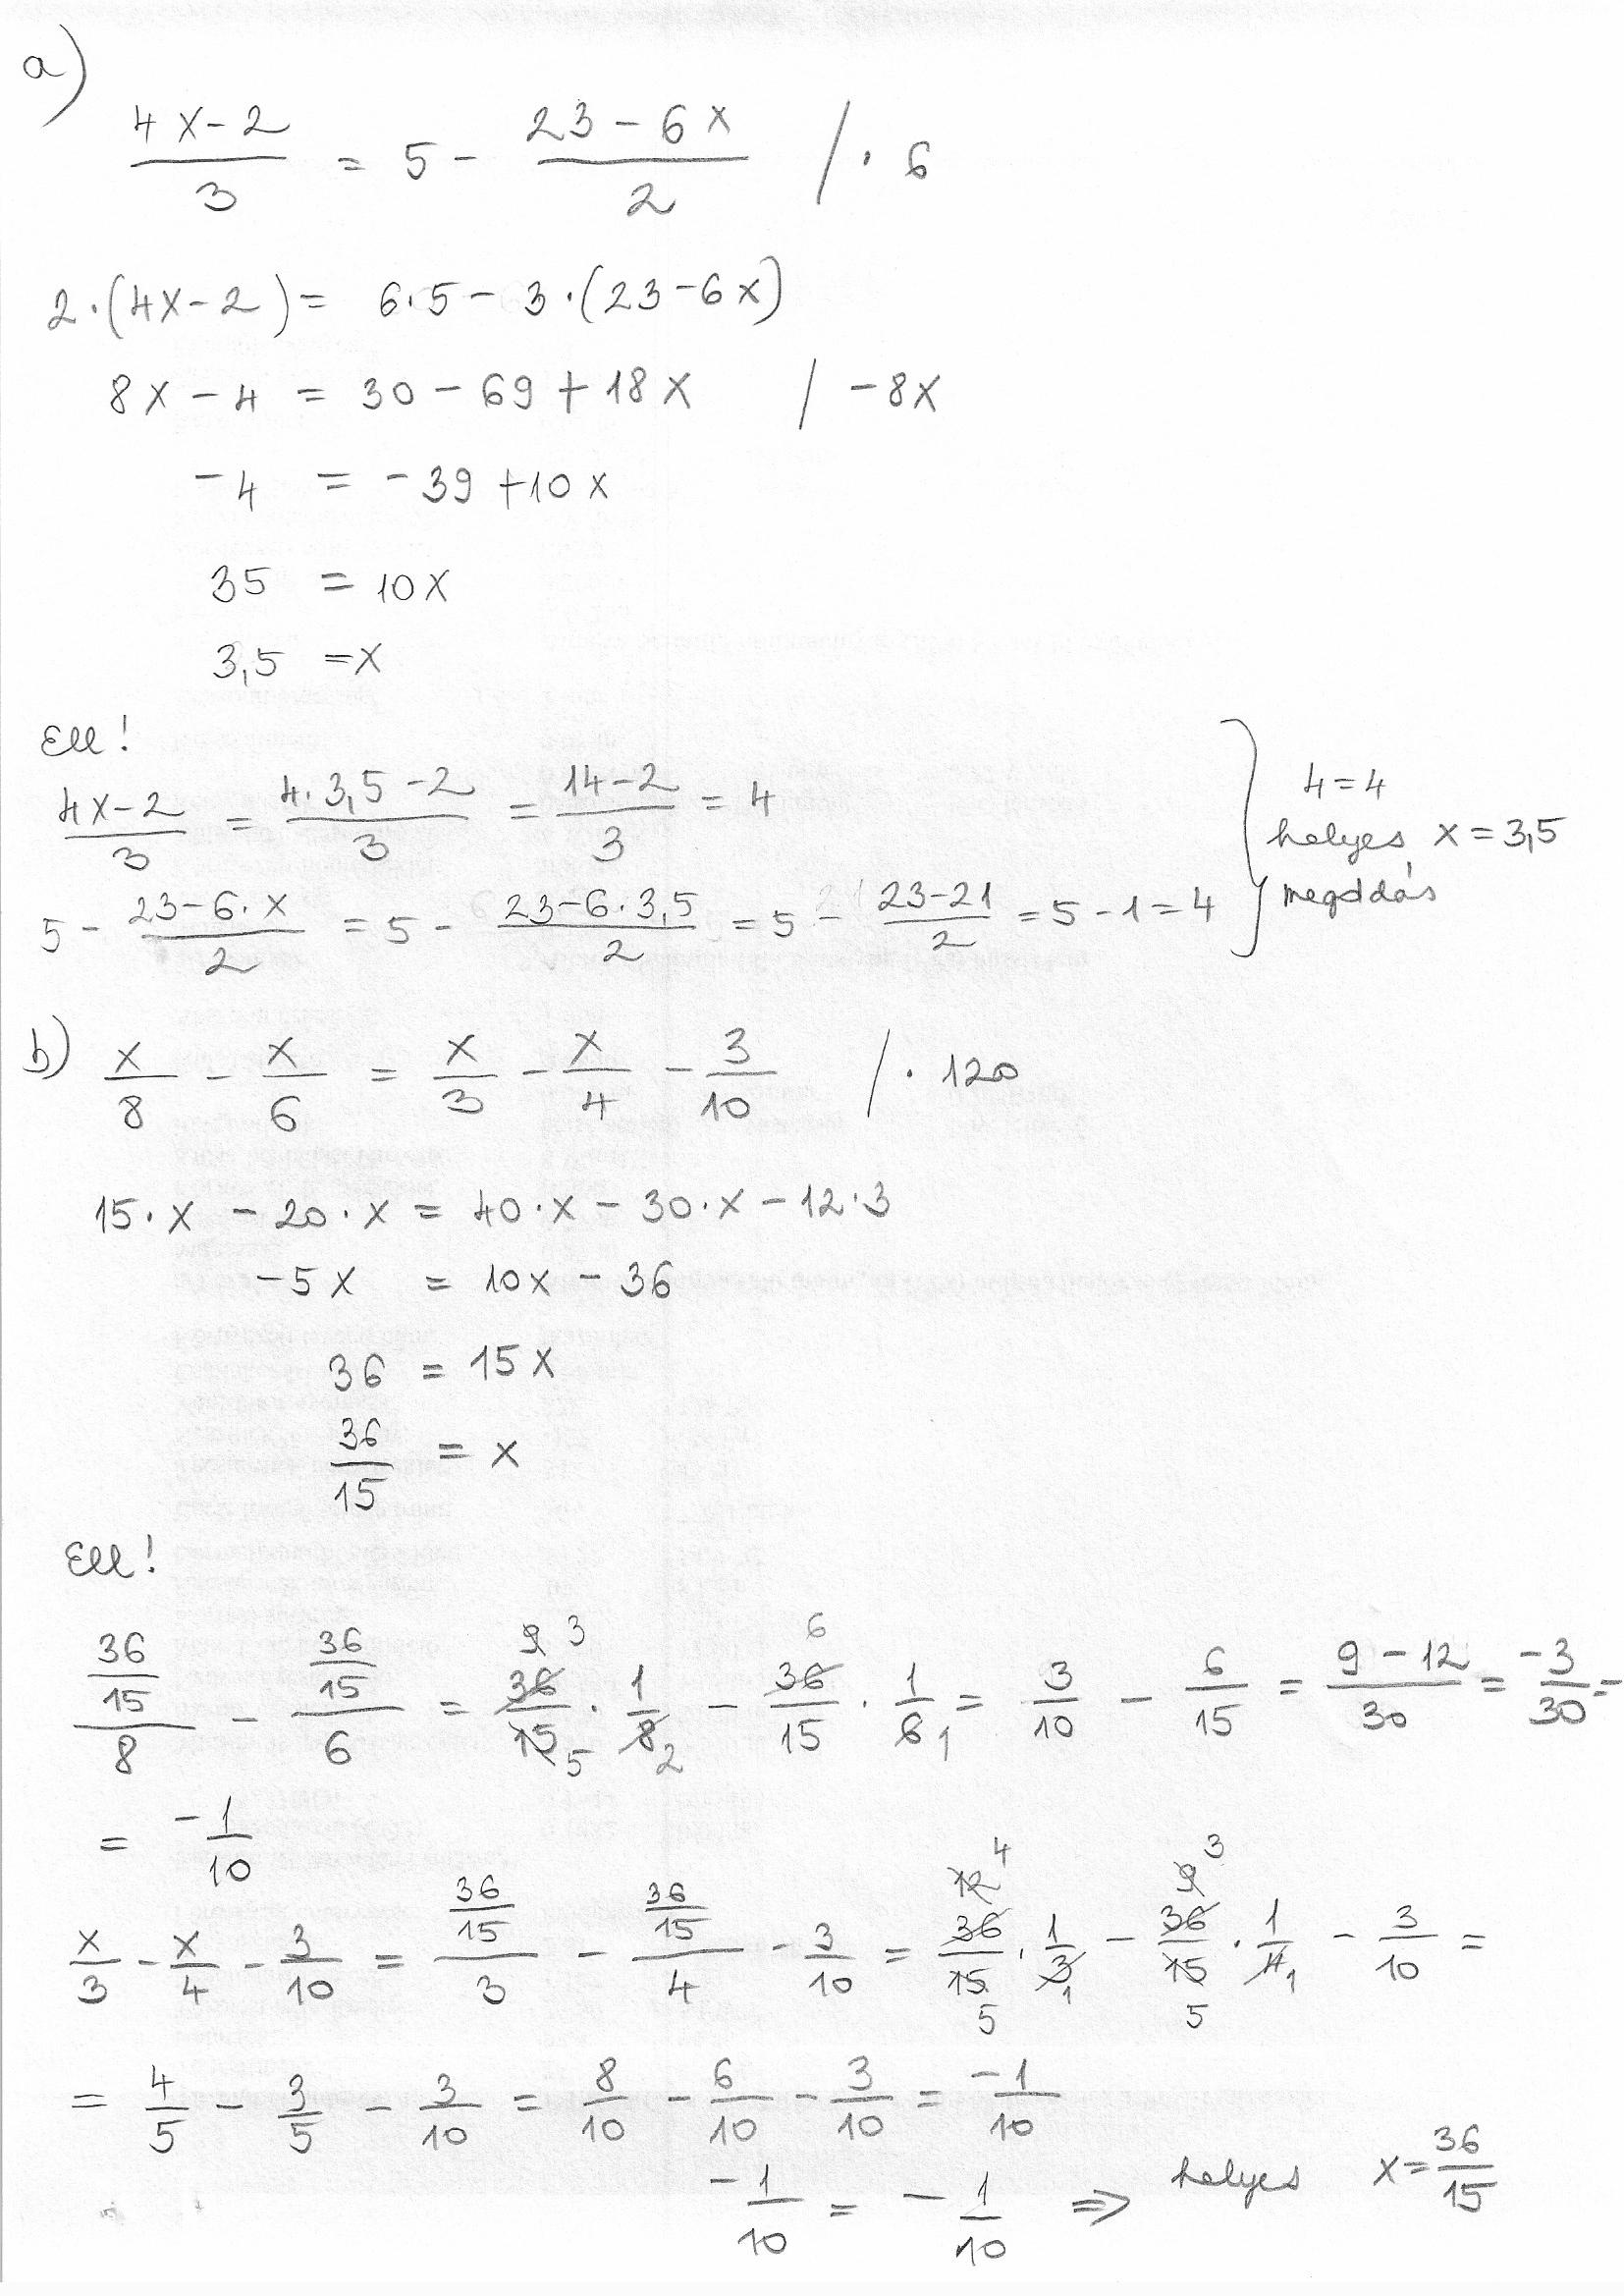 a)
(4x-2)/3 = 5 - (23-6x)/2 /·6
2·(4x-2) = 6·5 - 3·(23-6x)
8x - 4 = 30 - 69 + 18x / -8x
-4 = -39 + 10x
35 = 10x
3,5 = x
Ell!
(4x-2)/3 = (4·3,5-2)/3 = (14-2)/3 = 4
5 - (23-6·x)/2 = 5 - (23-6·3,5)/2 = 5 - (23-21)/2 = 5 - 1 = 4
4 = 4
helyes x = 3,5
megoldás
b) x/8 - x/6 = x/3 - x/4 - 3/10 /·120
15·x - 20·x = 40·x - 30·x - 12·3
-5x = 10x - 36
36 = 15x
36/15 = x
Ell!
(36/15)/8 - (36/15)/6 = 36/15 · 1/8 - 36/15 · 1/6 = 3/10 - 6/15 = (9-12)/30 = -3/30 =
9 3 5 2 6 1
= -1/10
x/3 - x/4 - 3/10 = (36/15)/3 - (36/15)/4 - 3/10 = 36/15 · 1/3 - 36/15 · 1/4 - 3/10 =
12 4 5 1 9 3 5 1
= 4/5 - 3/5 - 3/10 = 8/10 - 6/10 - 3/10 = -1/10
-1/10 = -1/10 ⇒ helyes x = 36/15